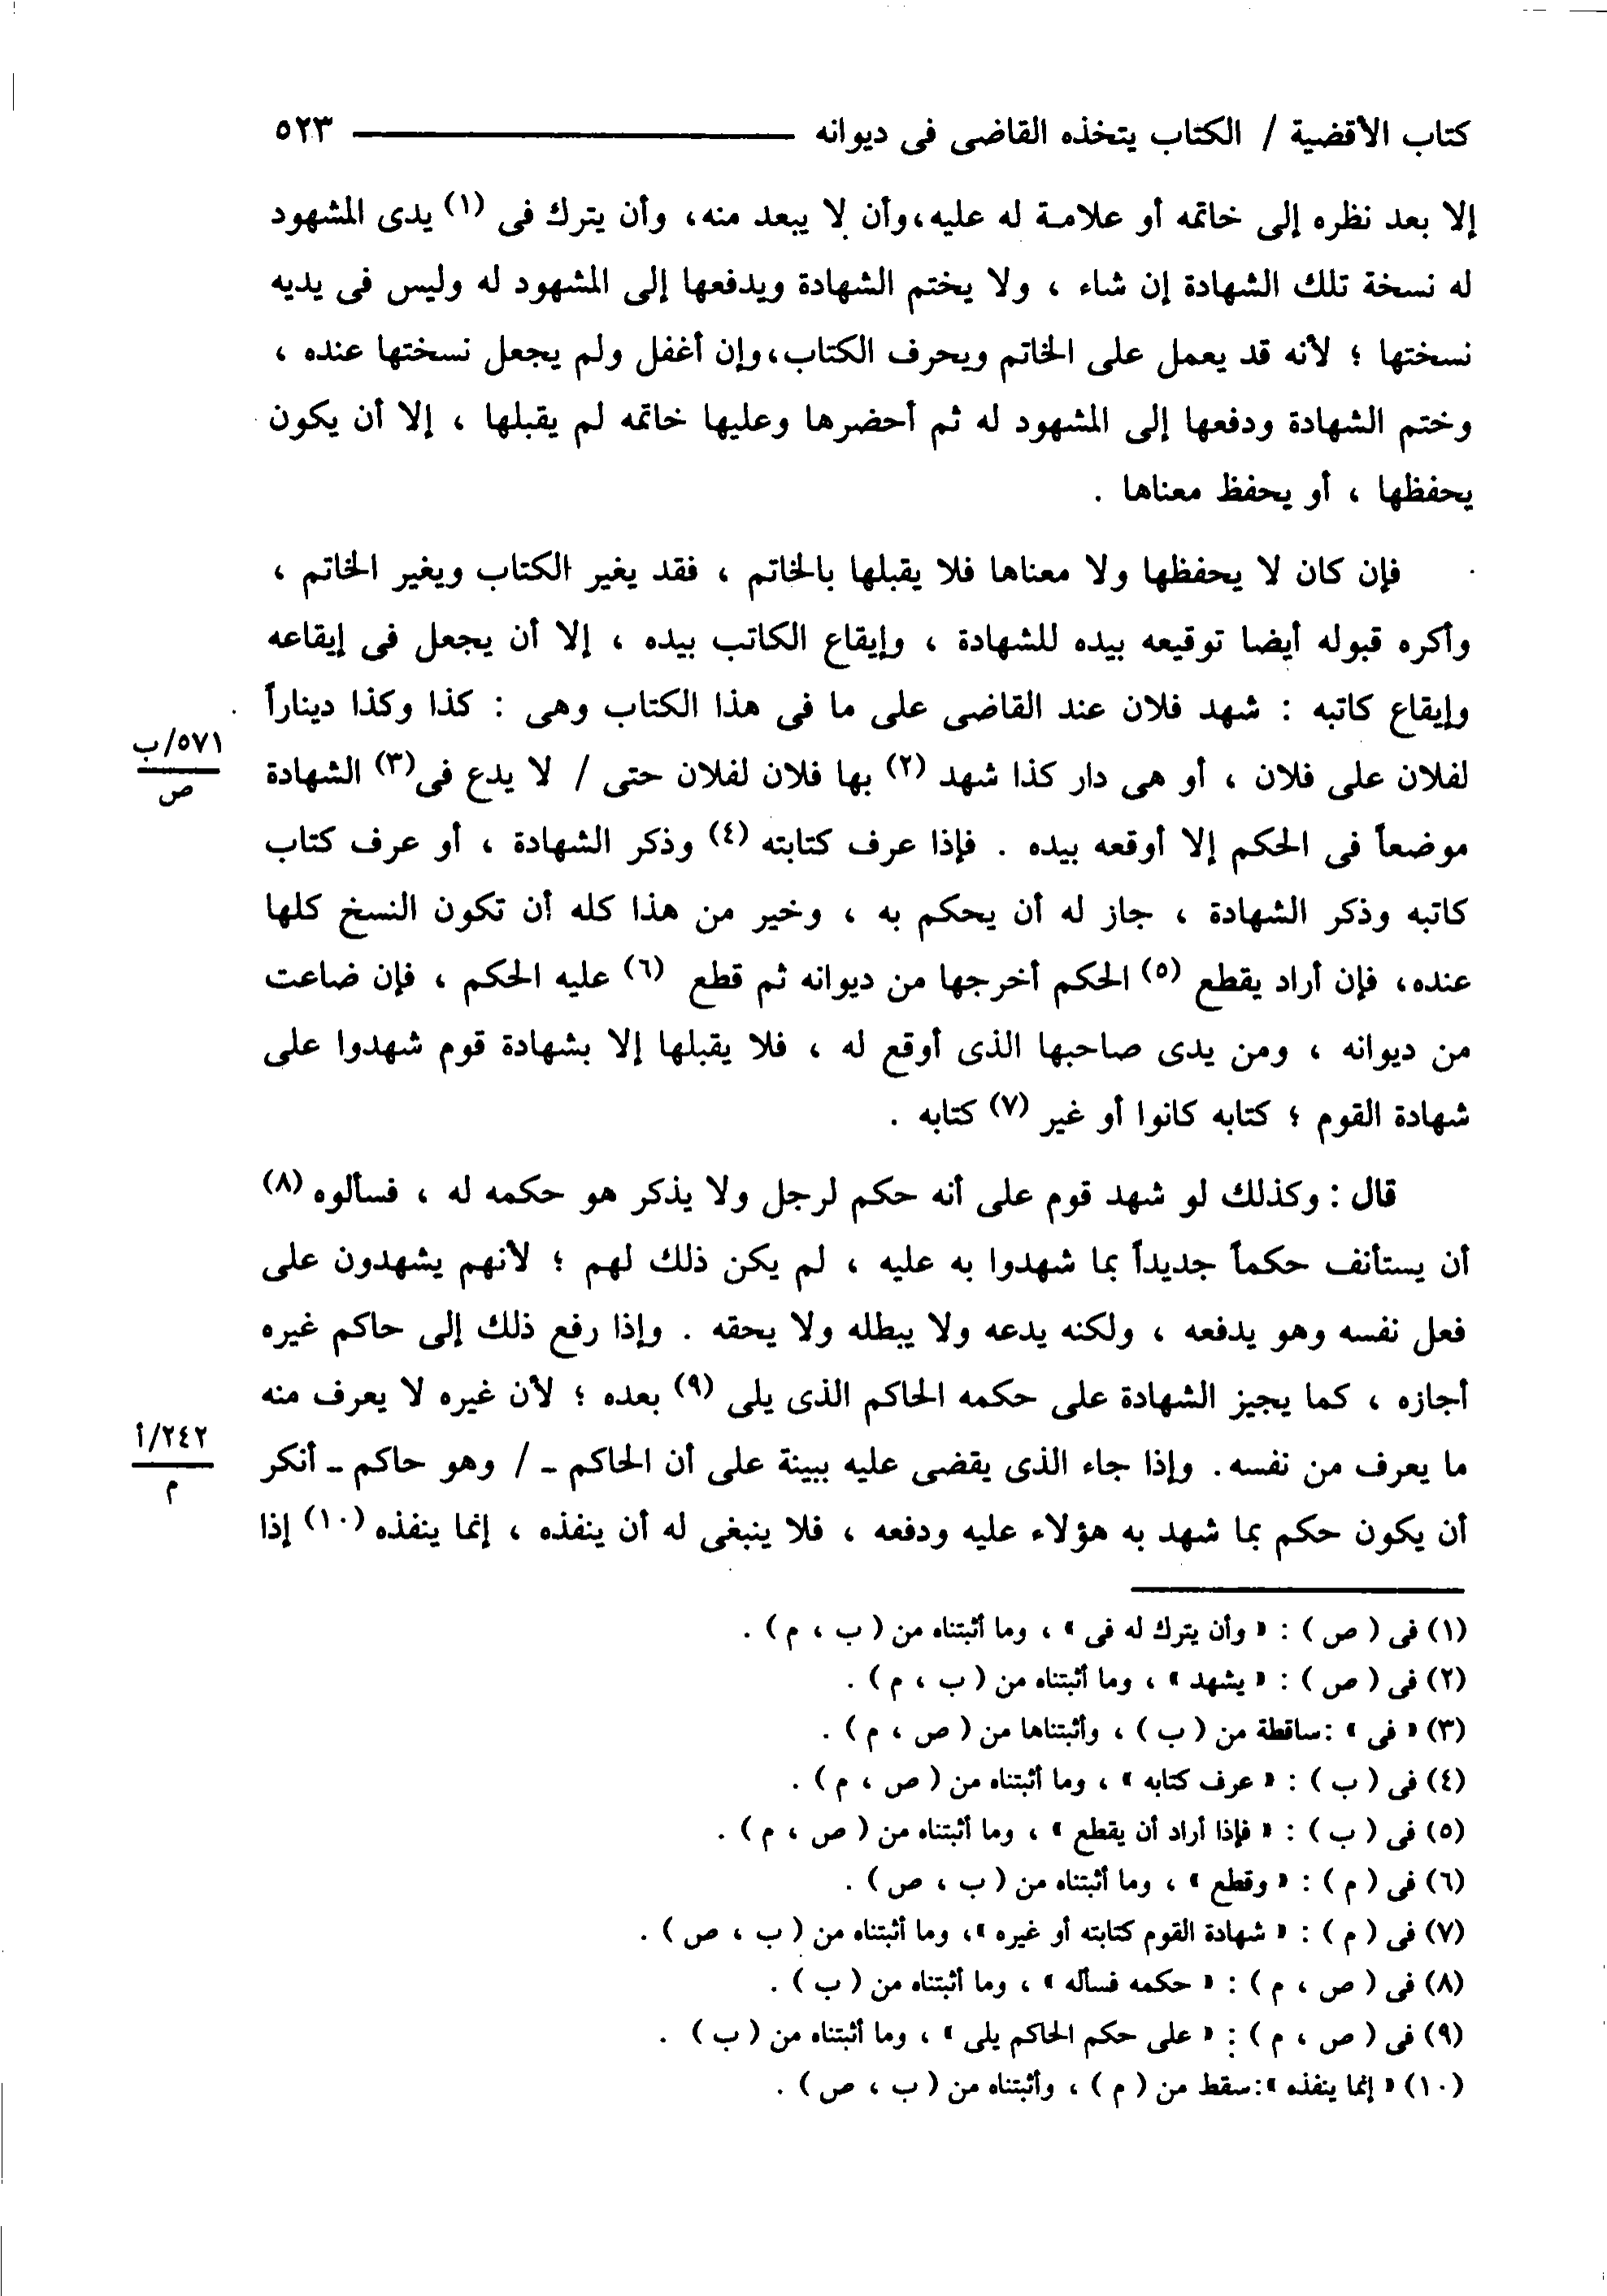 كتاب الأقضية / الكتاب يتخذه القاضى فى ديوانه ٥٢٣
إلا بعد نظره إلى خاتمه أو علامة له عليه،وأن لا يبعد منه، وأن يترك فى (١) يدى المشهود
له نسخة تلك الشهادة إن شاء ، ولا يختم الشهادة ويدفعها إلى المشهود له وليس فى يديه
نسختها ؛ لأنه قد يعمل على الخاتم ويحرف الكتاب،وإن أغفل ولم يجعل نسختها عنده ،
وختم الشهادة ودفعها إلى المشهود له ثم أحضرها وعليها خاتمه لم يقبلها ، إلا أن يكون
يحفظها ، أو يحفظ معناها .
فإن كان لا يحفظها ولا معناها فلا يقبلها بالخاتم ، فقد يغير الكتاب ويغير الخاتم ،
وأكره قبوله أيضا توقيعه بيده للشهادة ، وإيقاع الكاتب بيده ، إلا أن يجعل فى إيقاعه
وإيقاع كاتبه : شهد فلان عند القاضى على ما فى هذا الكتاب وهى : كذا وكذا ديناراً
لفلان على فلان ، أو هى دار كذا شهد (٢) بها فلان لفلان حتى / لا يدع فى(٣) الشهادة
٥٧١/ب
ص
موضعاً فى الحكم إلا أوقعه بيده . فإذا عرف كتابته (٤) وذكر الشهادة ، أو عرف كتاب
كاتبه وذكر الشهادة ، جاز له أن يحكم به ، وخير من هذا كله أن تكون النسخ كلها
عنده، فإن أراد يقطع (٥) الحكم أخرجها من ديوانه ثم قطع (٦) عليه الحكم ، فإن ضاعت
من ديوانه ، ومن يدى صاحبها الذى أوقع له ، فلا يقبلها إلا بشهادة قوم شهدوا على
شهادة القوم ؛ كتابه كانوا أو غير (٧) كتابه .
قال : وكذلك لو شهد قوم على أنه حكم لرجل ولا يذكر هو حكمه له ، فسألوه (٨)
أن يستأنف حكماً جديداً بما شهدوا به عليه ، لم يكن ذلك لهم ؛ لأنهم يشهدون على
فعل نفسه وهو يدفعه ، ولكنه يدعه ولا يبطله ولا يحقه . وإذا رفع ذلك إلى حاكم غيره
أجازه ، كما يجيز الشهادة على حكمه الحاكم الذى يلى (٩) بعده ؛ لأن غيره لا يعرف منه
ما يعرف من نفسه. وإذا جاء الذى يقضى عليه ببينة على أن الحاكم ـ / وهو حاكم ـ أنكر
٢٤٢/أ
م
أن يكون حكم بما شهد به هؤلاء عليه ودفعه ، فلا ينبغى له أن ينفذه ، إنما ينفذه (١٠) إذا
(١) فى ( ص ) : « وأن يترك له فى » ، وما أثبتناه من ( ب ، م ) .
(٢) فى ( ص ) : « يشهد » ، وما أثبتناه من ( ب ، م ) .
(٣) « فى » :ساقطة من ( ب ) ، وأثبتناها من ( ص ، م ) .
(٤) فى ( ب ) : « عرف كتابه » ، وما أثبتناه من ( ص ، م ) .
(٥) فى ( ب ) : « فإذا أراد أن يقطع » ، وما أثبتناه من ( ص ، م ) .
(٦) فى ( م ) : « وقطع » ، وما أثبتناه من ( ب ، ص ) .
(٧) فى ( م ) : « شهادة القوم كتابته أو غيره »، وما أثبتناه من ( ب ، ص ) .
(٨) فى ( ص ، م ) : « حكمه فسأله » ، وما أثبتناه من ( ب ) .
(٩) فى ( ص ، م ) : « على حكم الحاكم يلى » ، وما أثبتناه من ( ب ) .
(١٠) « إنما ينفذه »:سقط من ( م ) ، وأثبتناه من ( ب ، ص ) .